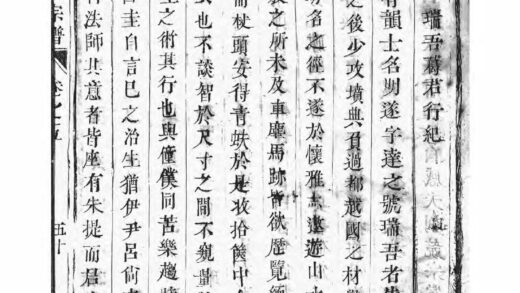 瑞吾蒋君行紀
有韻士名明遂字達之號瑞吾者
之後少攻墳典負過都越國之材
名之徑不遂於懷雅志遨遊山
之所未及車塵馬跡皆欲歷覽
而杖頭安得青蚨於是收拾篋中
也不談智於尺寸之間不窺量
之術其行也與僮僕同苦樂趨
圭自言已之治生猶伊尹呂尚
法師其意者皆座有朱提而居
宗譜 五十